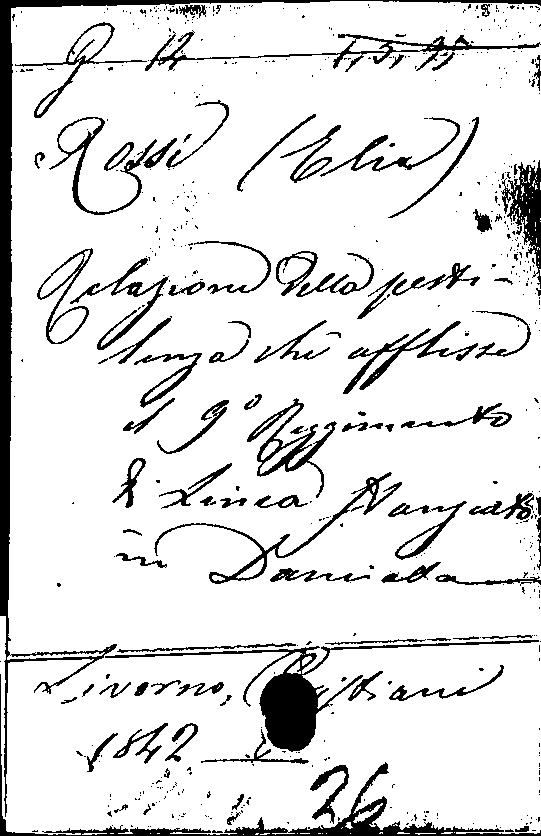 P. 12 1, 5, 95
Rossi (Elia)
Relazione della pesti-
lenza che afflisse
il 9º Reggimento
di Linea stanziato
in Damiata
Livorno,
1842
26